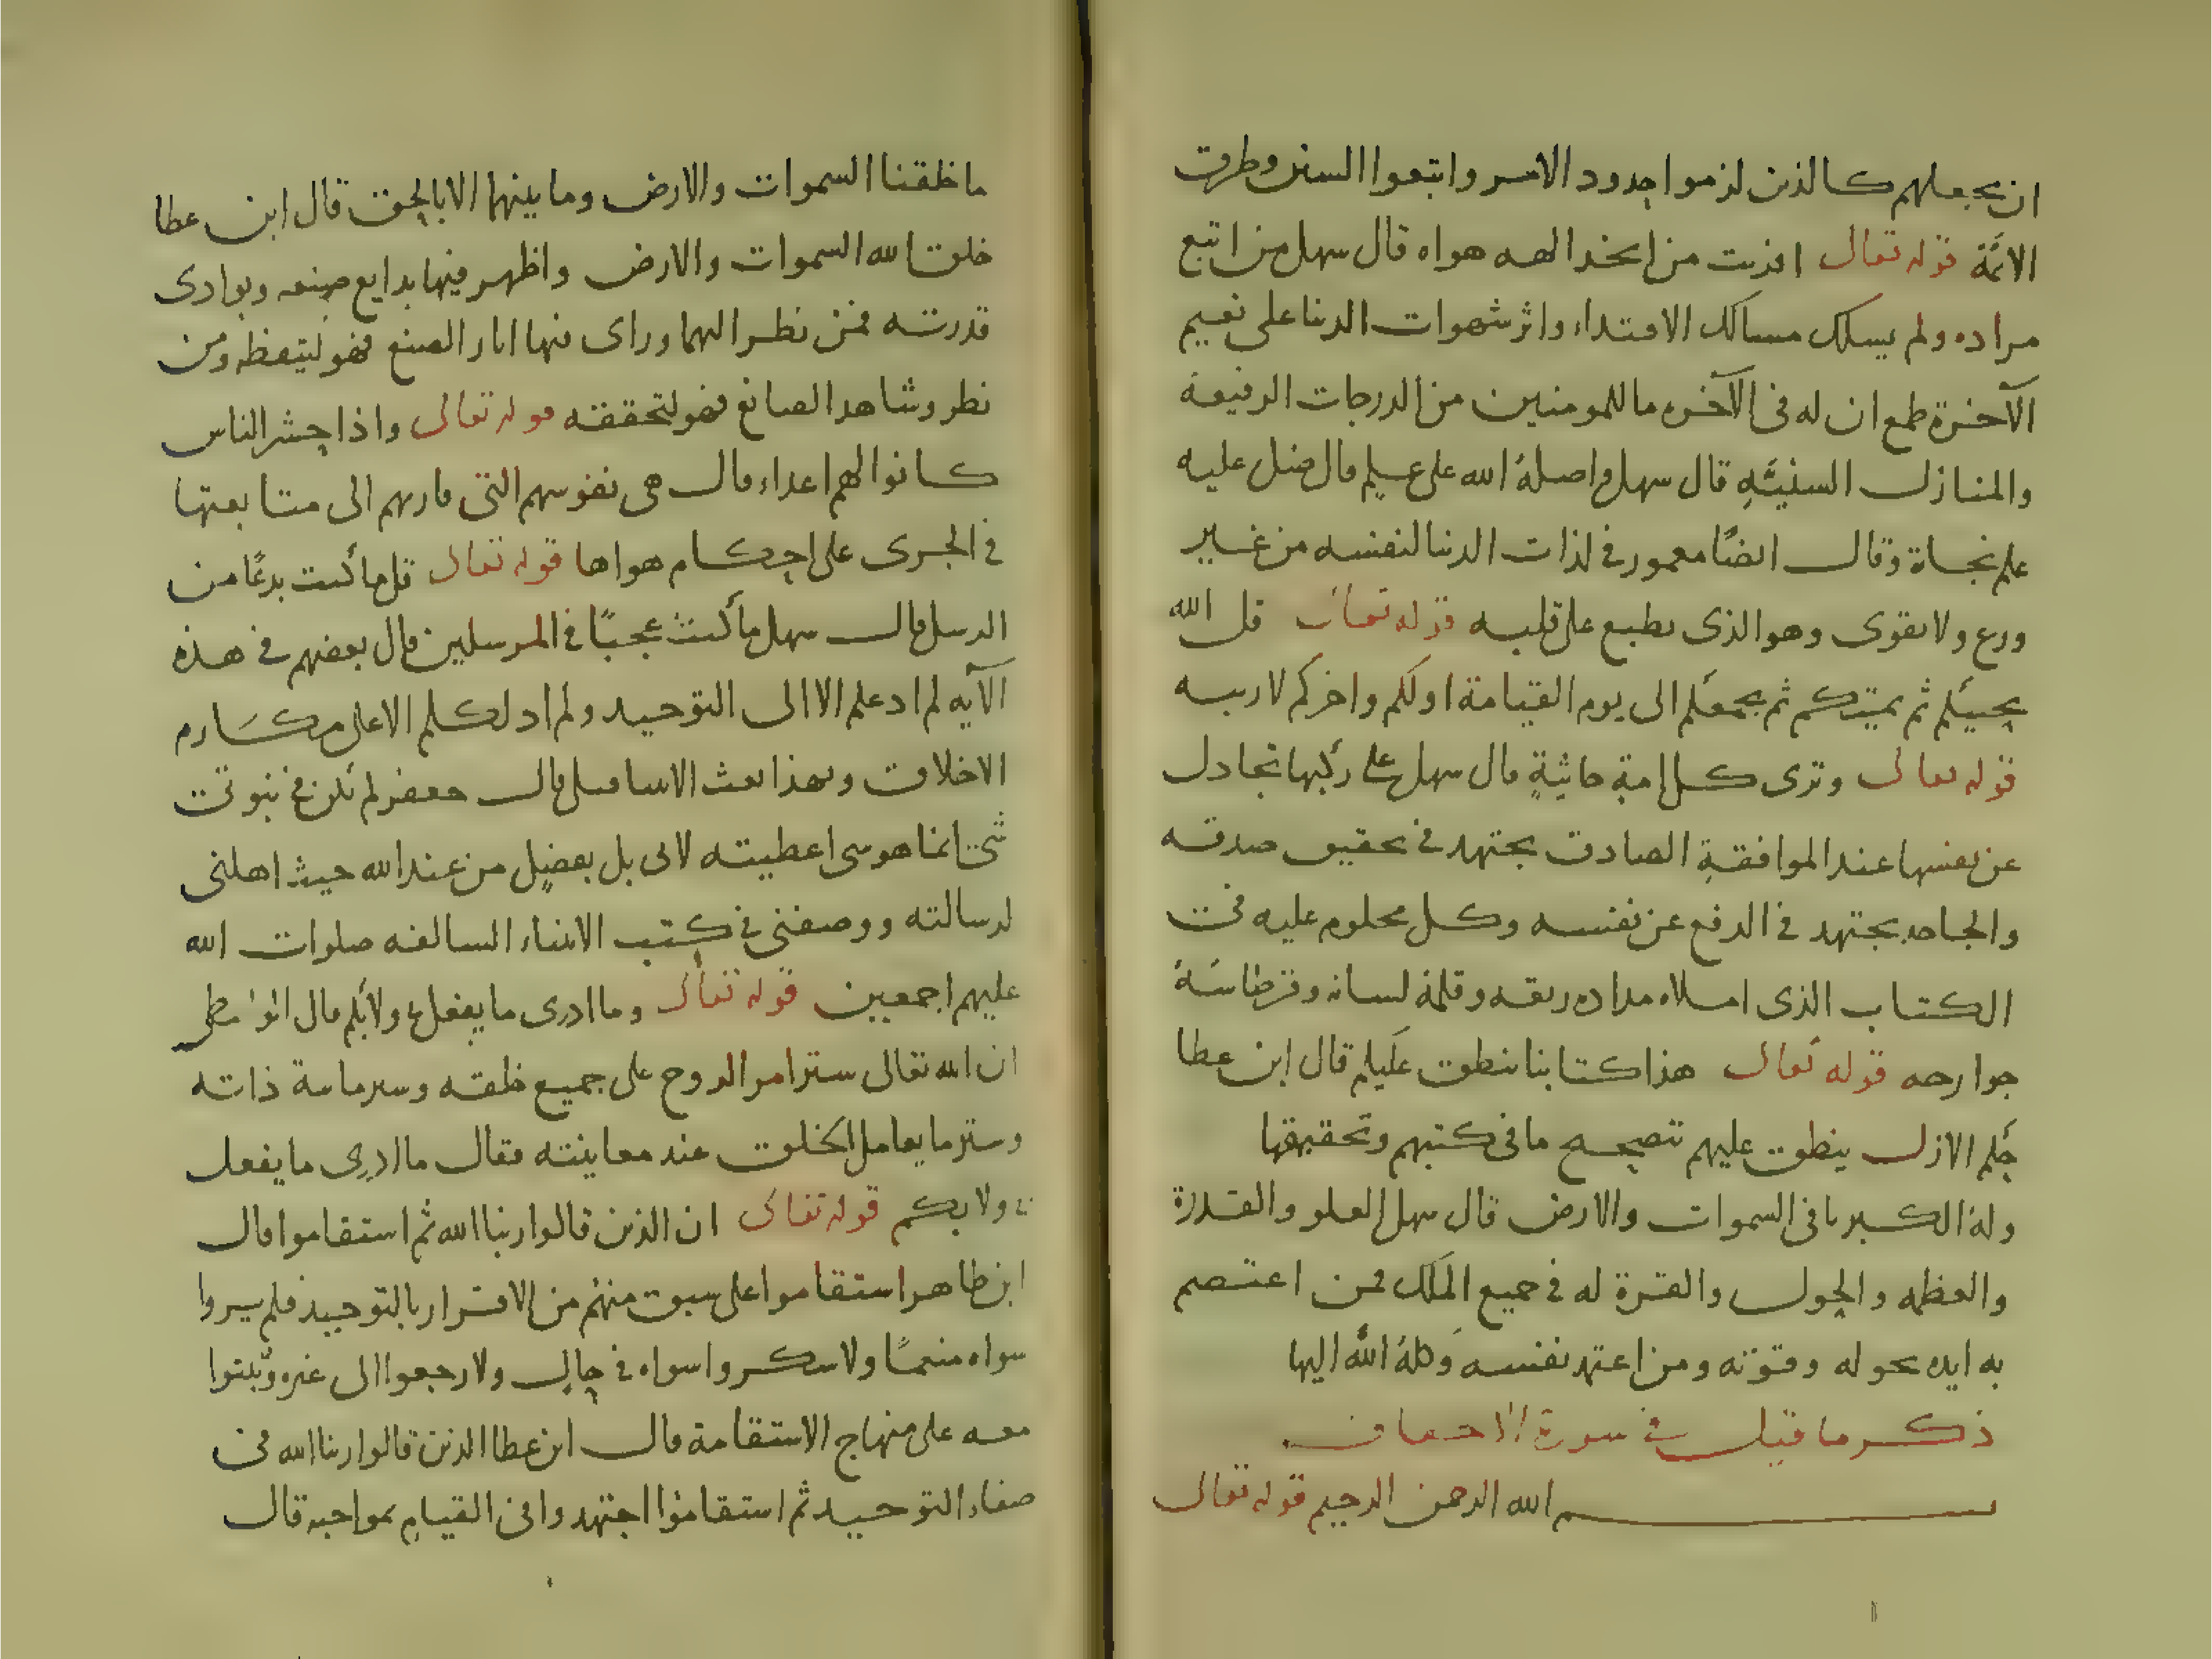 ان يجعلهم كالذين لزموا حدود الامر واتبعوا السنن وطرقت
الائمة قوله تعالى افريت من اتخذ الهه هواه قال سهل من اتبع
مراده ولم يسلك مسالك الاقتداء واثر شهوات الدنيا على نعيم
الآخرة طمع ان له فى الآخره ما للمومنين من الدرجات الرفيعة
والمنازل السنيّهِ قال سهل واضلهُ الله على علم قال ضل عليه
علم نجاة وقال ايضًا معمور فى لذات الدنيا لنفسه من غير
ورع ولا تقوى وهو الذى يطبع على قلبه قوله تعالى قل الله
يحييكم ثم يميتكم ثم يجمعكم الى يوم القيامة اولكم واخركم لا ريبه
قوله تعالى وترى كل امةٍ جاثيةٍ قال سهل على ركبها تجادل
عن نفسها عند الموافقةِ الصادق يجتهد فى تحقيق صدقه
والجاحد يجتهد فى الدفع عن نفسه وكل محلوم عليه فى
الكتاب الذى املاه مداده ريقه وقلمهُ لسانه وقرطاسهُ
جوارحه قوله تعالى هذا كتابنا ينطق عليكم قال ابن عطا
حكم الازل ينطق عليهم تصحيح ما فى كتبهم وتحقيقها
وله الكبريا فى السموات والارض قال سهل العلو والقدرة
والعظمه والحول والقوة له فى جميع الملك فمن اعتصم
به ايده بحوله وقوّته ومن اعتمد نفسه وكلهُ الله اليها
ذكر ما قيل فى سورة الاحقاف
بسم الله الرحمن الرحيم قوله تعالى
ما خلقنا السموات والارض وما بينهما الا بالحق قال ابن عطا
خلق الله السموات والارض واظهر فيها بدايع صنعه وبوادى
قدرته فمن نظر اليهما وراى فيها اثار الصنع فهو ليتعظه ومن
نظر وشاهد الصانع فهو لتحققه قوله تعالى واذا حشر الناس
كانوا لهم اعداء قال هى نفوسهم التى قادتهم الى متابعتها
فى الجرى على احكام هواها قوله تعالى قل ما كنت بدعًا من
الرسل قال سهل ما كنت عجبًا فى المرسلين قال بعضهم فى هذه
الآيه لم ادعكم الا الى التوحيد ولم ادلكم الا على مكارم
الاخلاق وبهذا بعث الانبيا قبلى قال جعفر لم يكن فى نبوتى
شى انما هو شى اعطيته لا بى بل بفضلٍ من عند الله حيث اهلنى
لرسالته ووصفنى فى كتب الانبياء السالفه صلوات الله
عليهم اجمعين قوله تعالى وما ادرى ما يفعل بى ولا بكم قال
ان الله تعالى ستر امر الروح على جميع خلقه وستر ذاته
وستر ما يعامل الخلق عند معاينته فقال ما ادرى ما يفعل
بى ولا بكم قوله تعالى ان الذين قالوا ربنا الله ثم استقاموا قال
ابن طاهر استقاموا على سبق منهم من الاقرار بالتوحيد فلم يروا
سواه منعمًا ولا شكروا سواه فى حالٍ ولا رجعوا الى غيره وثبتوا
معه على منهاج الاستقامة قال ابن عطا الذين قالوا ربنا الله فى
صفاء التوحيد ثم استقاموا اجتهدوا فى القيام بمواجبه قال